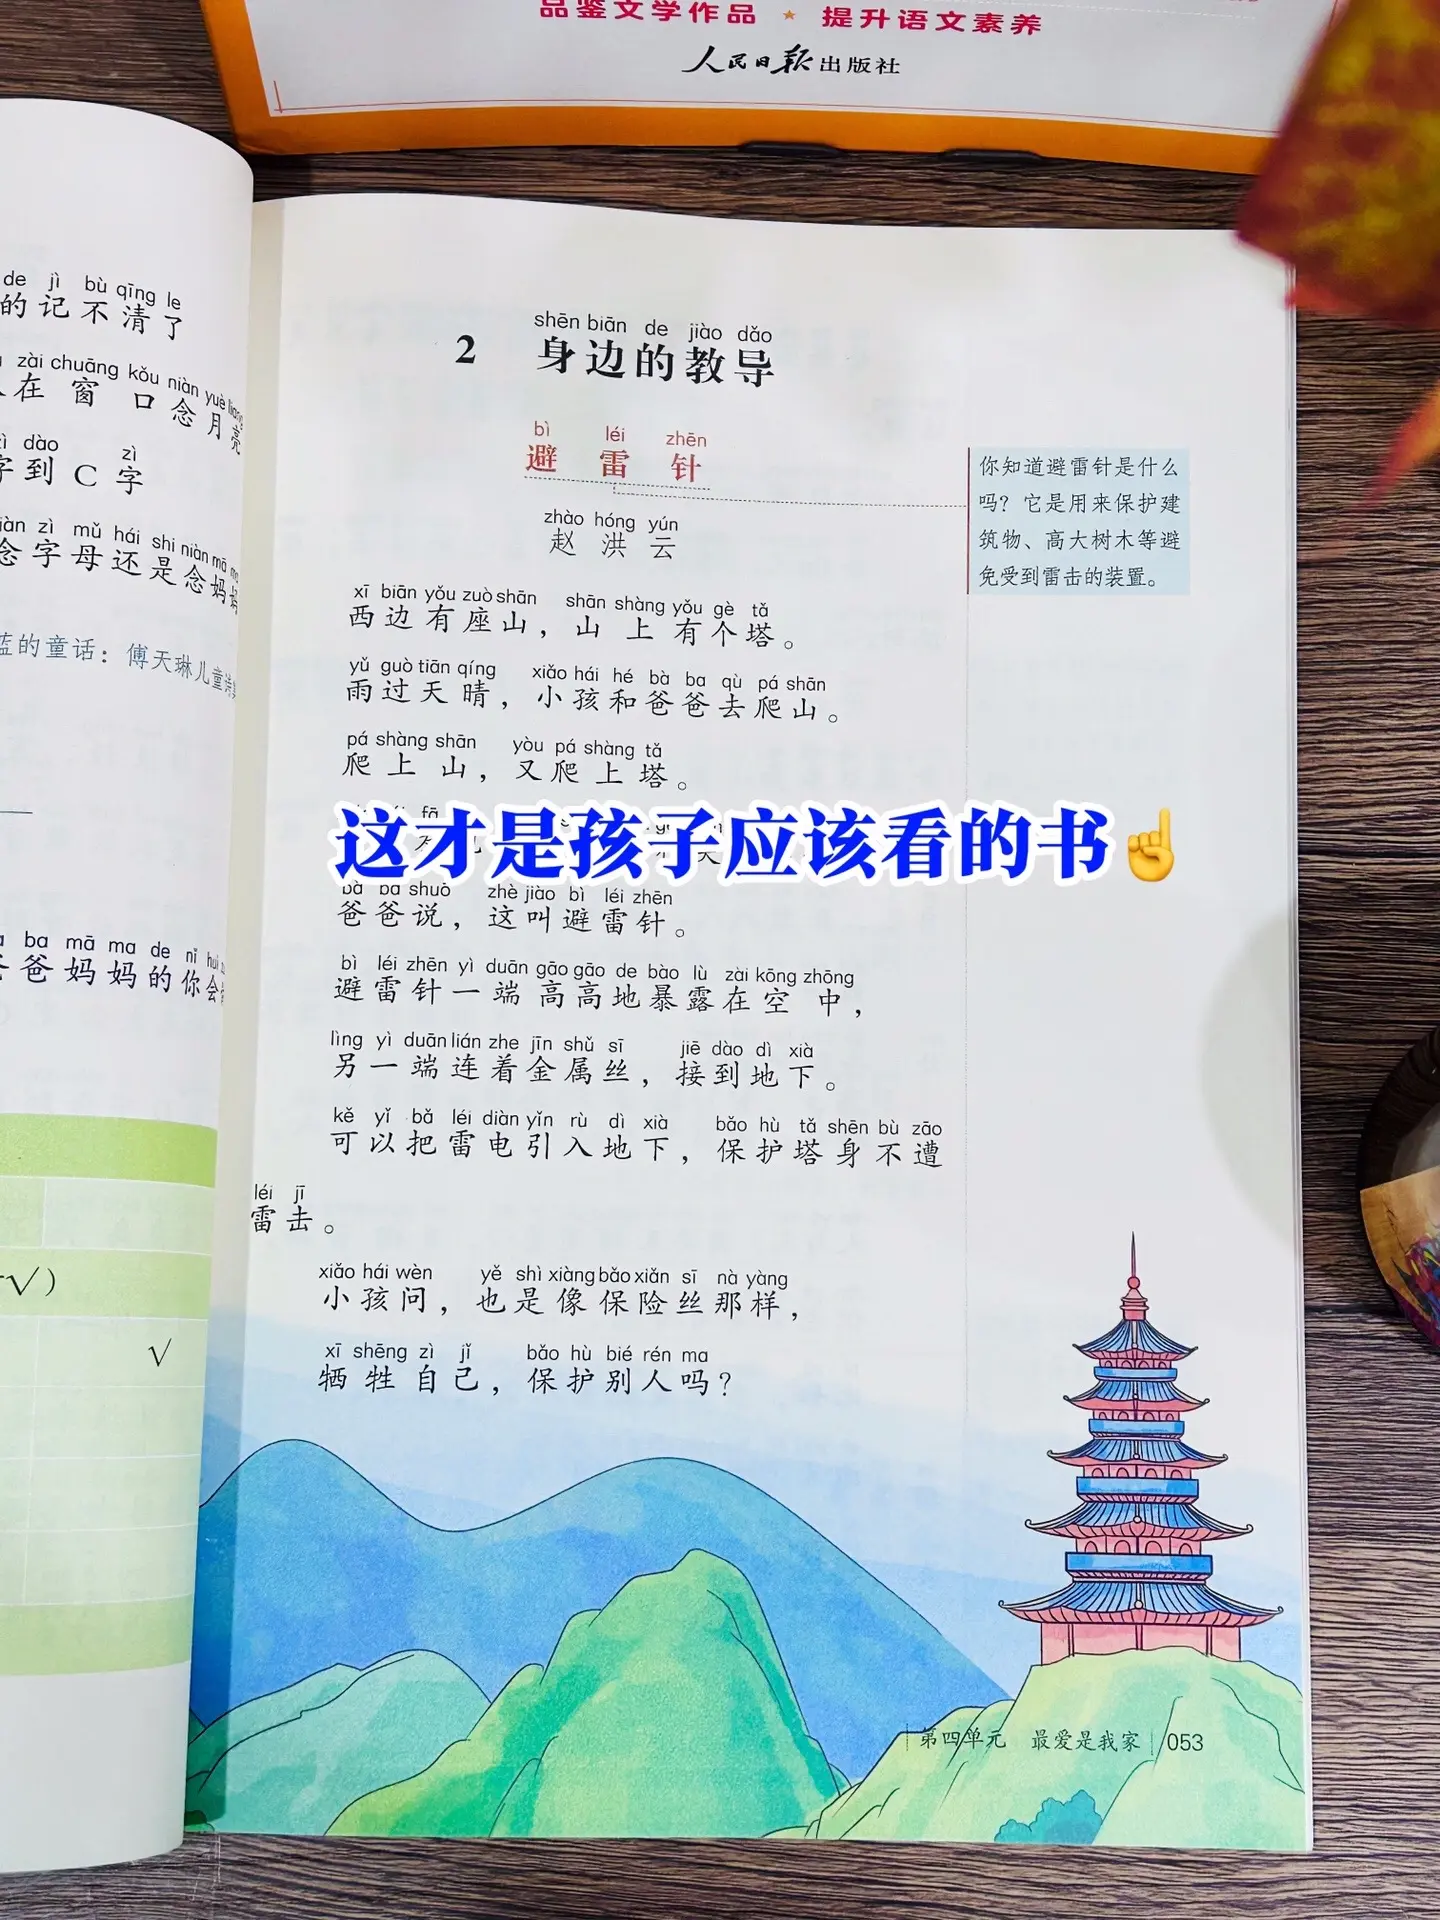 品鉴文学作品 ★ 提升语文素养
人民日报出版社
de jì bù qīng le
的记不清了
zài chuāng kǒu niàn yuè liang
在窗口念月亮
dào C zì
字到C字
zì mǔ hái shi niàn mā
念字母还是念妈
的童话：傅天琳儿童诗
ba mā ma de nǐ huì
爸妈妈的你会
√）
√
shēn biān de jiào dǎo
2 身边的教导
bì léi zhēn
避雷针
zhào hóng yún
赵洪云
你知道避雷针是什么
吗？它是用来保护建
筑物、高大树木等避
免受到雷击的装置。
xī biān yǒu zuò shān shān shàng yǒu gè tǎ
西边有座山，山上有个塔。
yǔ guò tiān qíng xiǎo hái hé bà ba qù pá shān
雨过天晴，小孩和爸爸去爬山。
pá shàng shān yòu pá shàng tǎ
爬上山，又爬上塔。
这才是孩子应该看的书☝
bà ba shuō zhè jiào bì léi zhēn
爸爸说，这叫避雷针。
bì léi zhēn yì duān gāo gāo de bào lù zài kōng zhōng
避雷针一端高高地暴露在空中，
lìng yì duān lián zhe jīn shǔ sī jiē dào dì xià
另一端连着金属丝，接到地下。
kě yǐ bǎ léi diàn yǐn rù dì xià bǎo hù tǎ shēn bù zāo
可以把雷电引入地下，保护塔身不遭
léi jī
雷击。
xiǎo hái wèn yě shì xiàng bǎo xiǎn sī nà yàng
小孩问，也是像保险丝那样，
xī shēng zì jǐ bǎo hù bié rén ma
牺牲自己，保护别人吗？
第四单元 最爱是我家 053